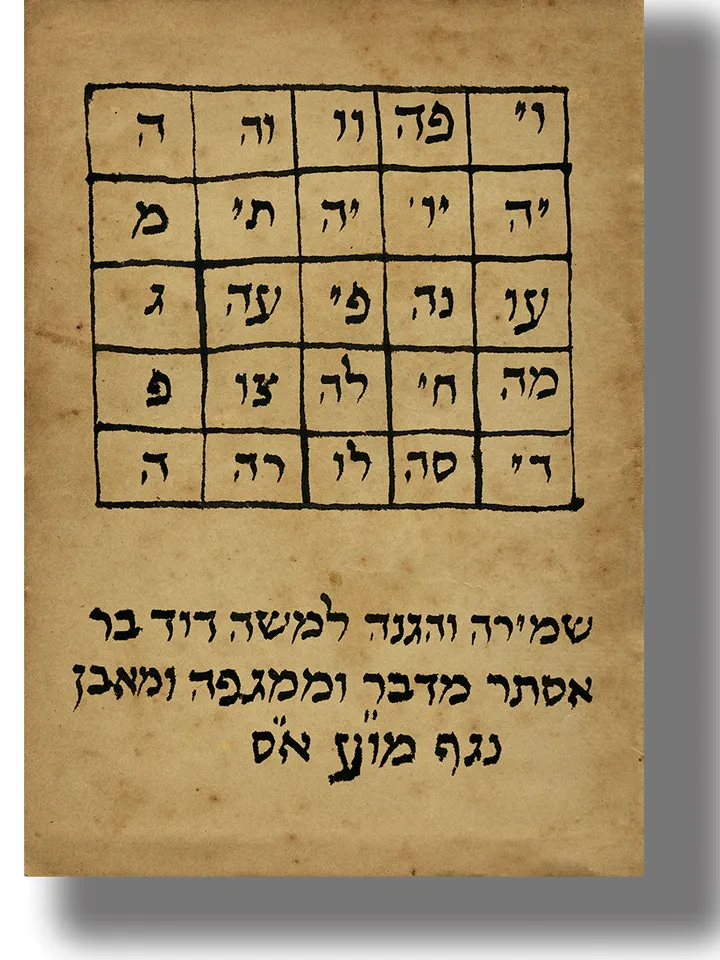 וי פה וו וה ה
יה יו יה תי מ
עו נה פי עה ג
מה חי לה צו פ
די סה לו רה ה
שמירה והגנה למשה דוד בר
אסתר מדבר וממגפה ומאבן
נגף מו"ע א"ס